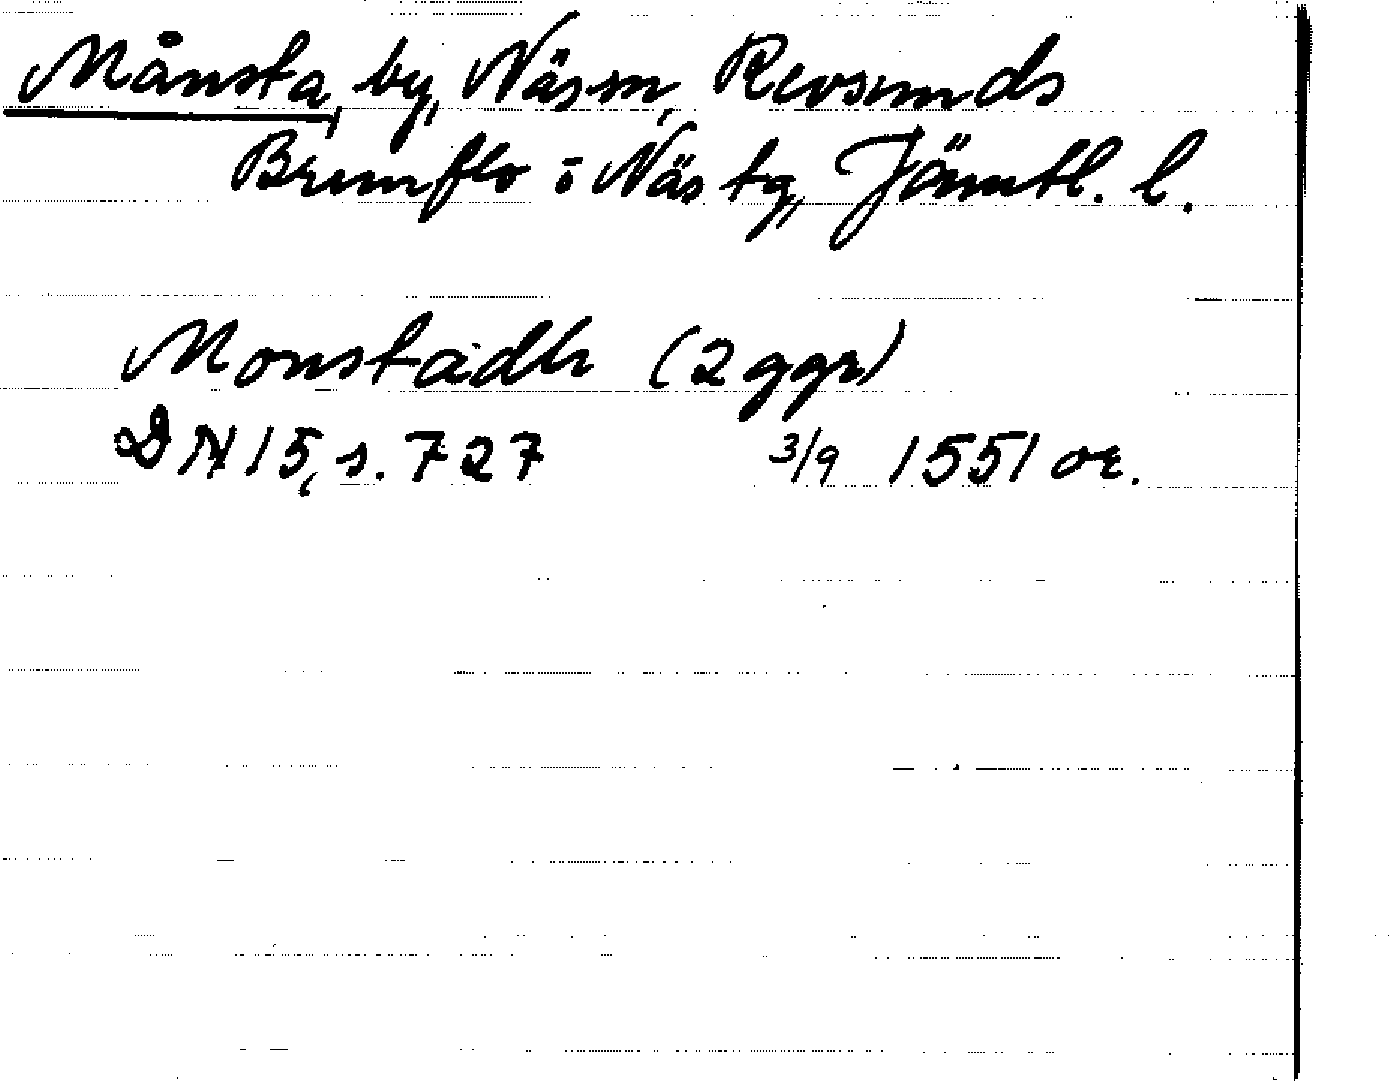 Månsta, by, Näs sn, Revsunds
Brunflo o Näs tg, Jämtl. l.
Monstadh (2 ggr)
DN 15, s. 727 3/9 1551 or.